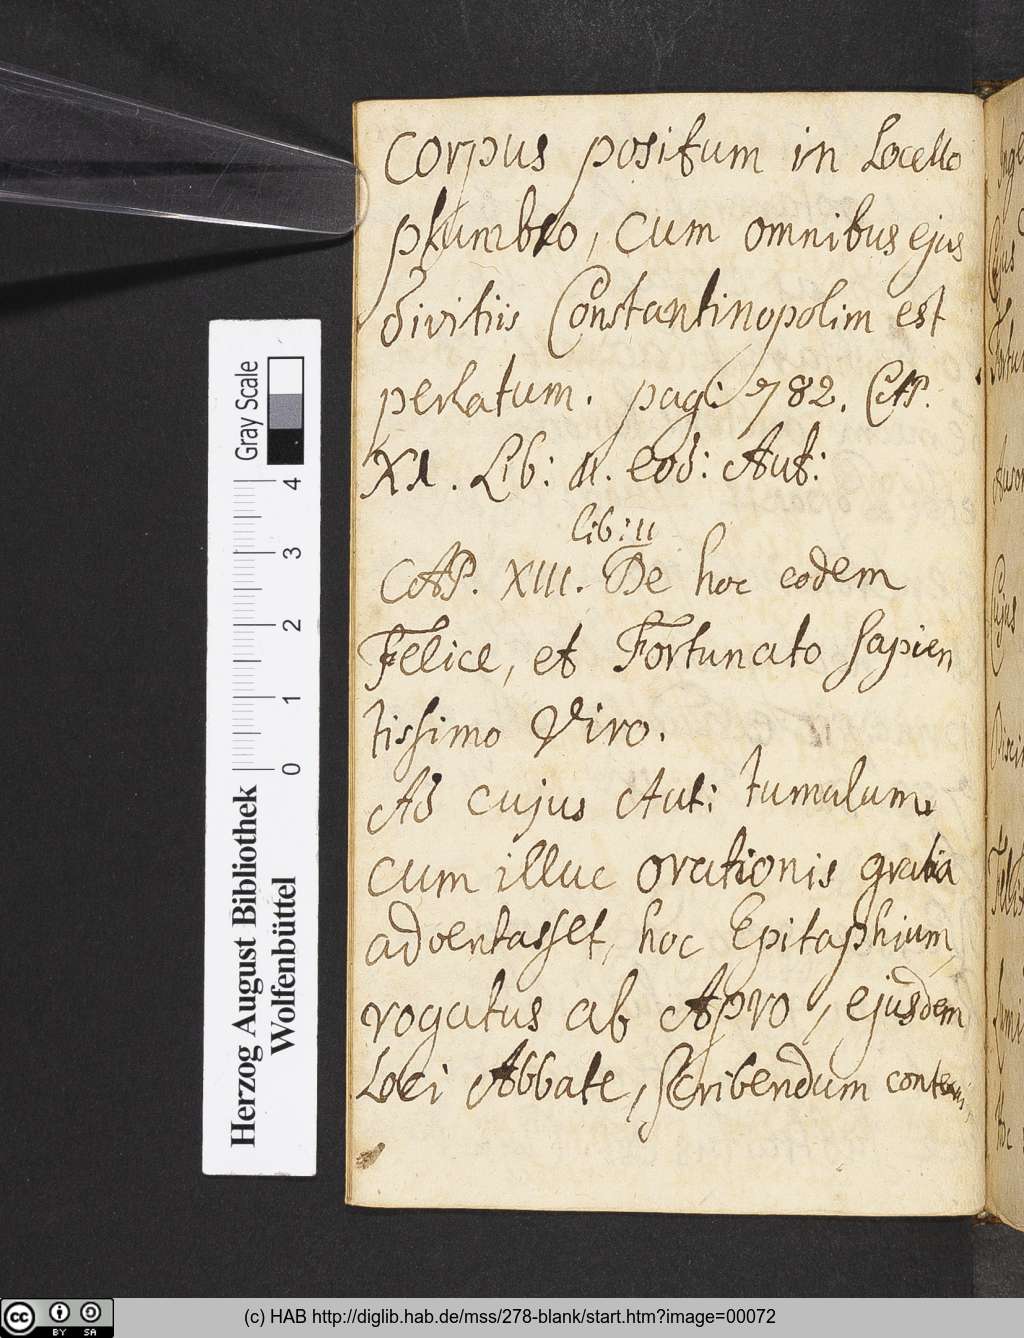 Corpus positum in Locello
plumbeo, cum omnibus ejus
divitiis Constantinopolim est
perlatum. pag: 782. CAP.
XI. Lib: II. eod: Aut:
lib: II
CAP. XIII. De hoc eodem
Felice, et Fortunato sapien
tissimo Viro.
Ad cujus Aut: tumulum
cum illuc orationis gratia
adventasset, hoc Epitaphium,
rogatus ab Apro, ejusdem
Loci Abbate, scribendum
Gray Scale
4
3
2
1
0
Herzog August Bibliothek
Wolfenbüttel
cc BY SA
(c) HAB http://diglib.hab.de/mss/278-blank/start.htm?image=00072